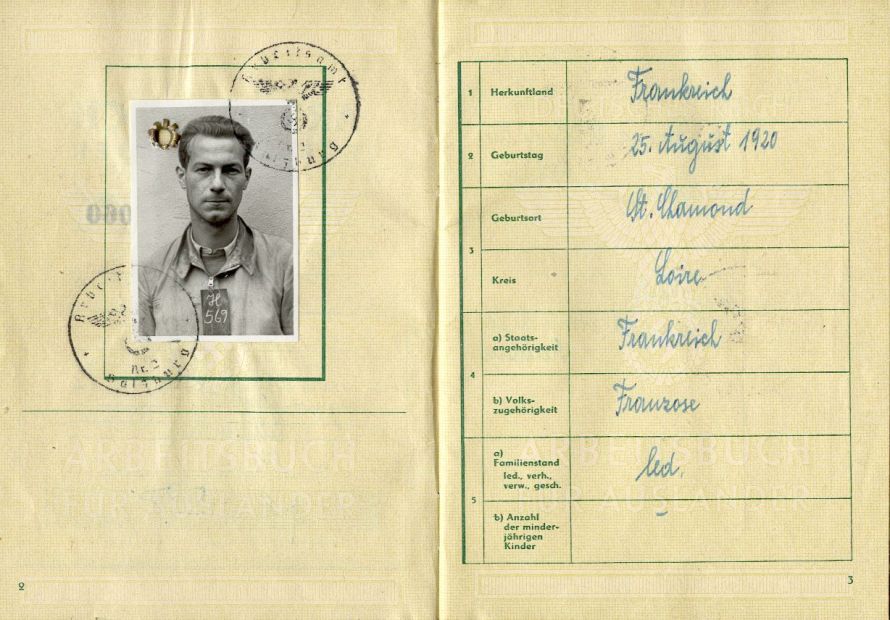 Arbeitsamt
Salzburg
H
569
Arbeitsamt
Nr. 2
Salzburg
ARBEITSBUCH
FÜR AUSLÄNDER
2
1 Herkunftland Frankreich
2 Geburtstag 25. August 1920
3 Geburtsort St. Chamond
Kreis Loire
4 a) Staats-
angehörigkeit Frankreich
b) Volks-
zugehörigkeit Franzose
5 a)
Familienstand
led., verh.,
verw., gesch. led.
b) Anzahl
der minder-
jährigen
Kinder –
ARBEITSBUCH
FÜR AUSLÄNDER
3